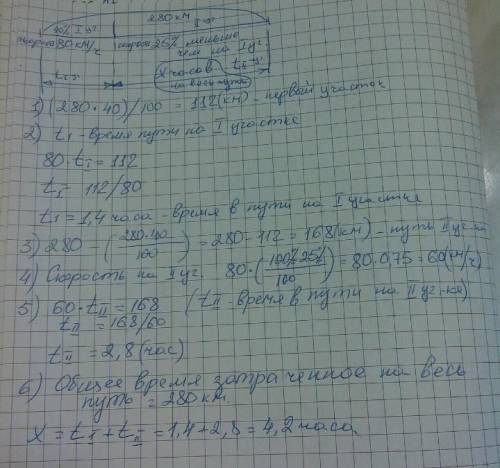 280 км
40% I уч. II уч.
скорость 80 км/ч скорость 25% меньше
чем на I уч.
X часов
на весь путь
1) (280·40)/100 = 112 (км) - первый участок
2) t₁ - время пути на I участке
80·tI = 112
tI = 112/80
t₁ = 1,4 часа - время в пути на I участке
3) 280 - (280·40/100) = 280-112 = 168 (км) - путь II уч-ка
4) Скорость на II уч. 80·(100%-25%/100) = 80·0,75 = 60 (км/ч)
5) 60·tII = 168 (tII - время в пути на II уч-ке)
tII = 168/60
tII = 2,8 (час)
6) Общее время затраченное на весь
путь = 280 км.
X = tI + tII = 1,4+2,8 = 4,2 часа